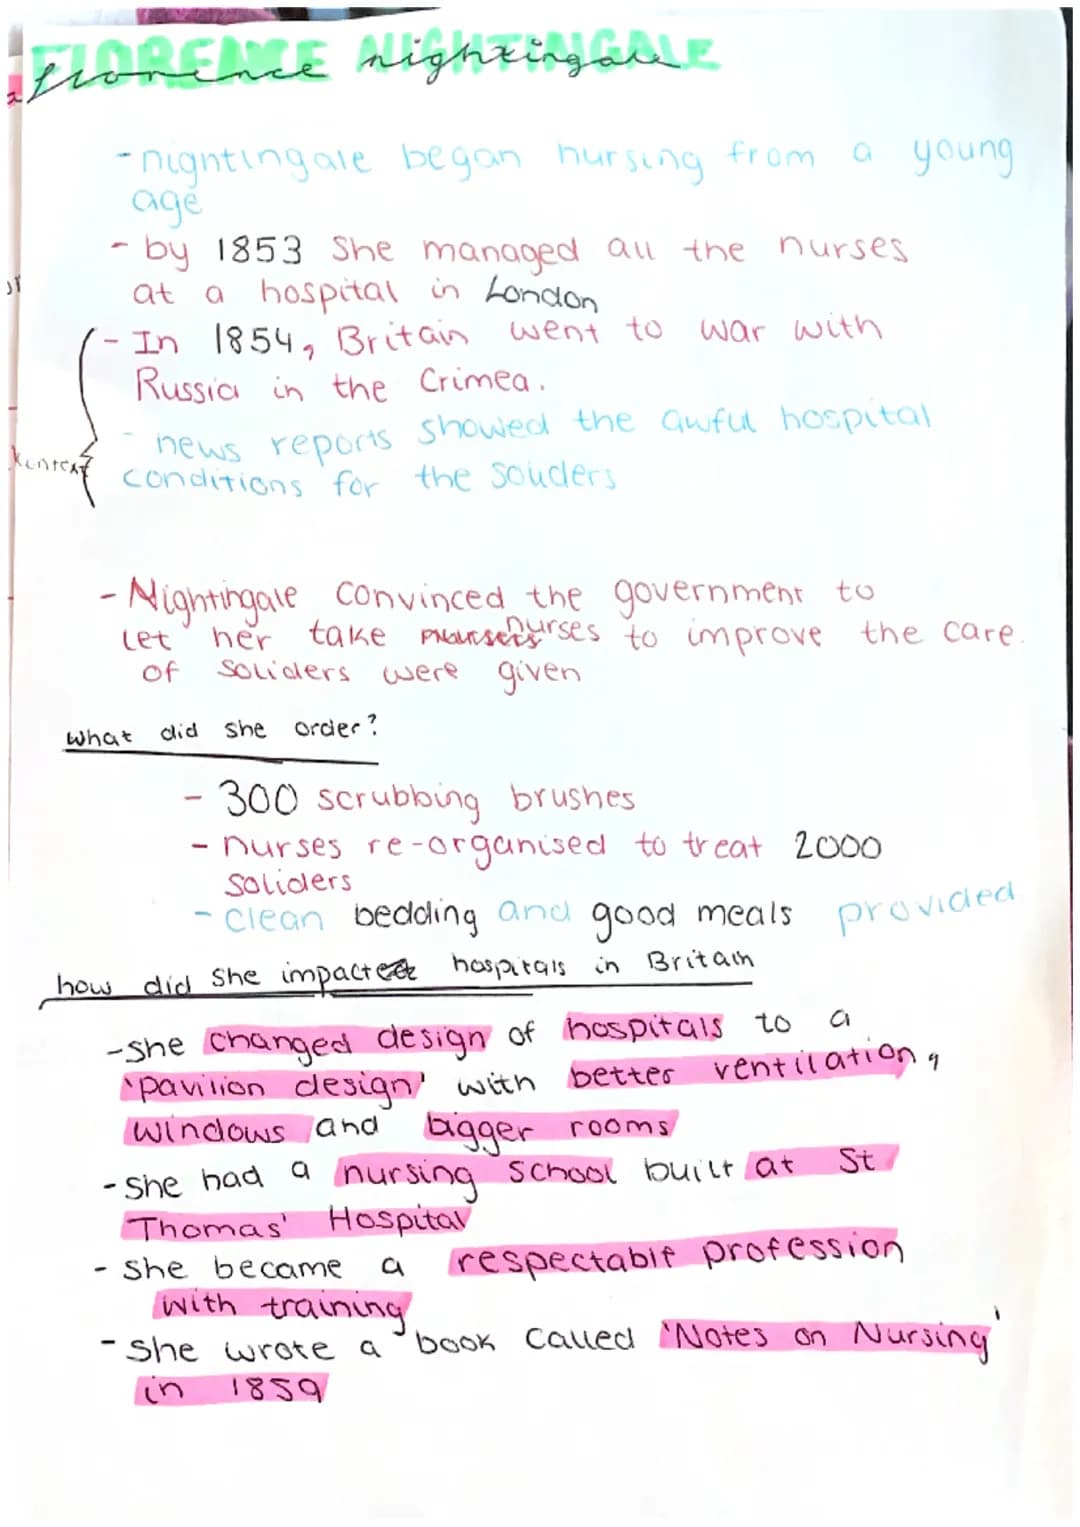 FLORENCE NIGHTINGALE
florence nightingale
- nightingale began nursing from a young
age
- by 1853 She managed all the nurses
at a hospital in London
- In 1854, Britain went to war with
Russia in the Crimea.
- news reports showed the awful hospital
conditions for the souders
- Nightingale convinced the government to
let her take nurses to improve the care
of soliders were given
what did she order?
- 300 scrubbing brushes
- nurses re-organised to treat 2000
soliders
- clean bedding and good meals provided
how did she impact hospitals in Britain
- she changed design of hospitals to a
'pavilion design' with better ventilation,
windows and bigger rooms
- she had a nursing school built at St
Thomas' Hospital
- she became a respectable profession
with training
- she wrote a book called 'Notes on Nursing'
in 1859